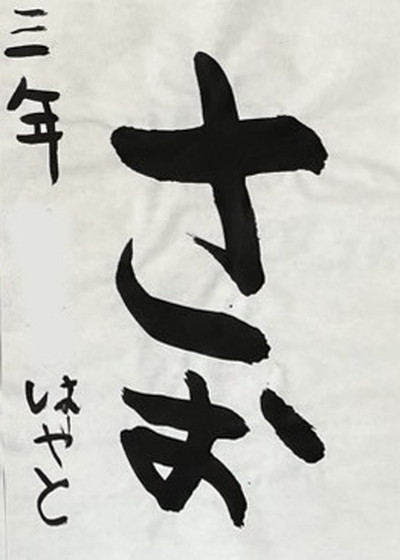 さお
三年 はやと